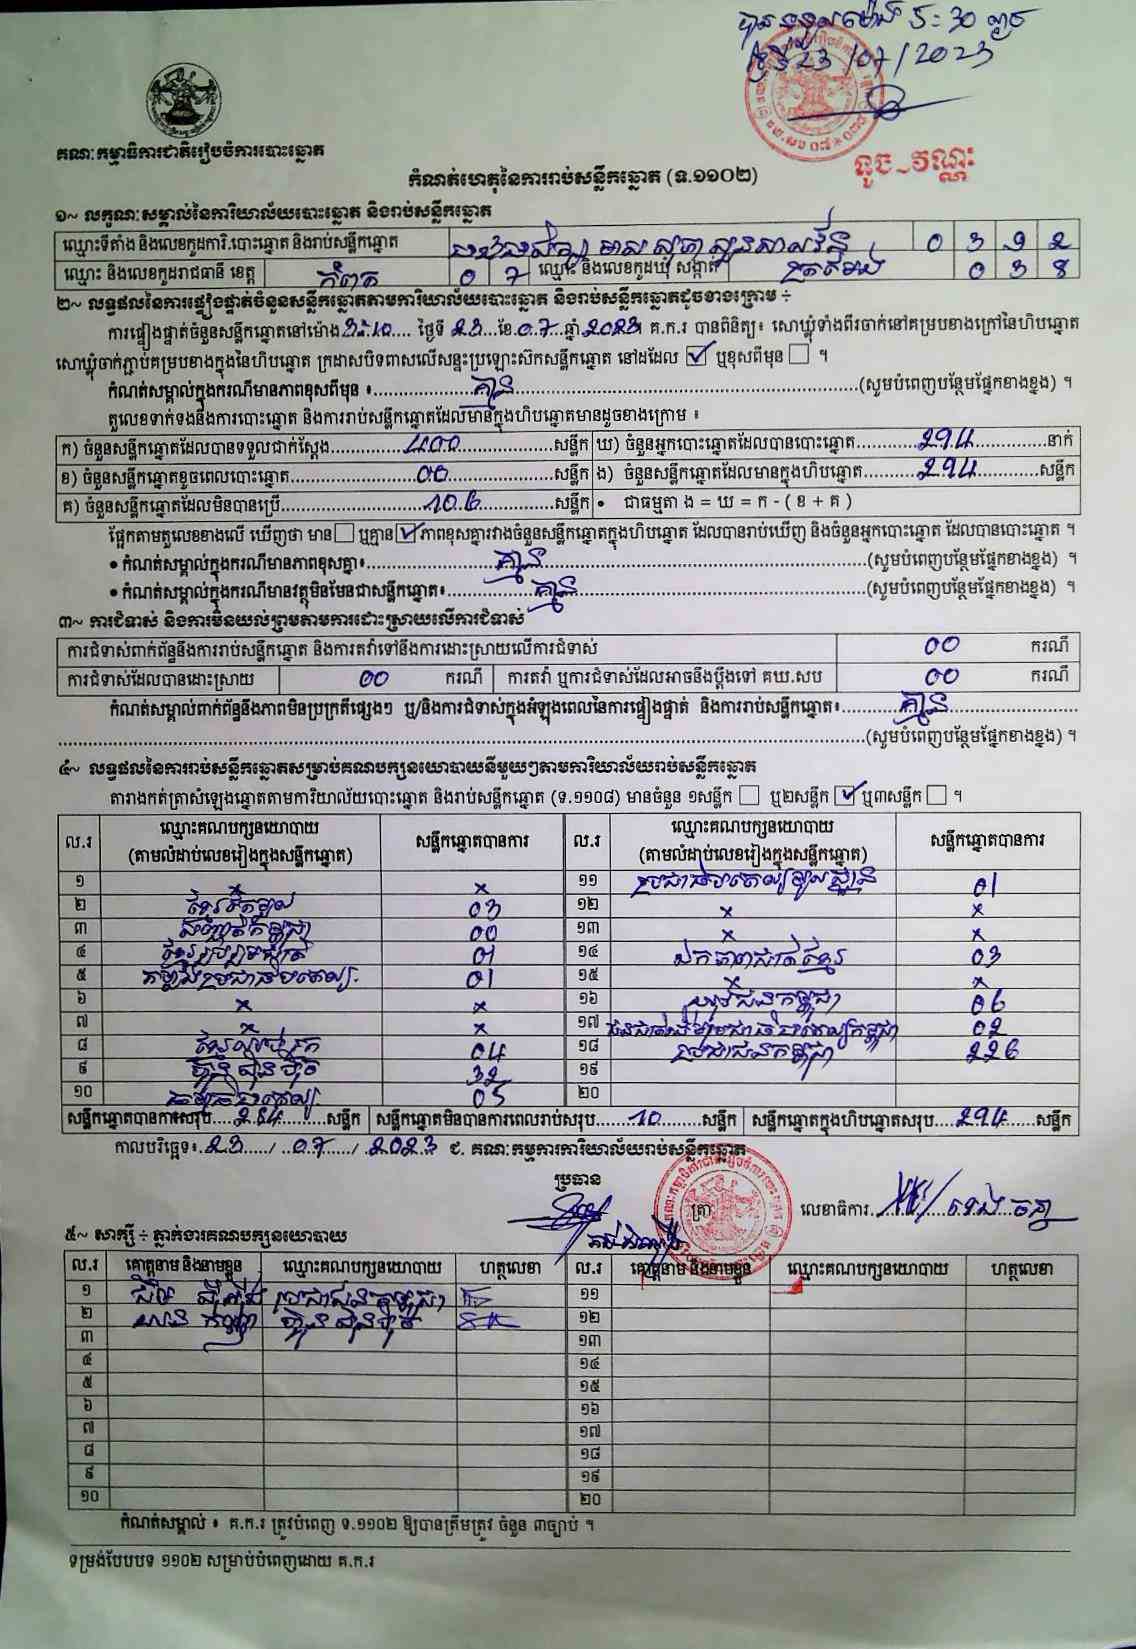 បានទទួលម៉ោង 5:30 នាទី
ថ្ងៃទី 23/07/2023
គណៈកម្មាធិការជាតិរៀបចំការបោះឆ្នោត
កំណត់ហេតុនៃការរាប់សន្លឹកឆ្នោត (ទ.១១០២)
ទូច វណ្ណះ
១~ លក្ខណៈសម្គាល់នៃការិយាល័យបោះឆ្នោត និងរាប់សន្លឹកឆ្នោត
ឈ្មោះទីតាំង និងលេខកូដការិ.បោះឆ្នោត និងរាប់សន្លឹកឆ្នោត 0 3 9 2
ឈ្មោះ និងលេខកូដរាជធានី ខេត្ត កំពត 0 7 ឈ្មោះ និងលេខកូដឃុំ សង្កាត់ 0 3 8
២~ លទ្ធផលនៃការផ្ទៀងផ្ទាត់ចំនួនសន្លឹកឆ្នោតតាមការិយាល័យបោះឆ្នោត និងរាប់សន្លឹកឆ្នោតដូចខាងក្រោម ÷
ការផ្ទៀងផ្ទាត់ចំនួនសន្លឹកឆ្នោតនៅម៉ោង 3:10 ថ្ងៃទី 23 ខែ 07 ឆ្នាំ 2023 គ.ក.រ បានពិនិត្យ៖ សោឃ្លុំទាំងពីរចាក់នៅគម្របខាងក្រៅនៃហិបឆ្នោត
សោឃ្លុំចាក់ភ្ជាប់គម្របខាងក្នុងនៃហិបឆ្នោត ក្រដាសបិទពាសលើសន្ទះប្រឡោះស៊កសន្លឹកឆ្នោត នៅដដែល ✓ ឬខុសពីមុន ។
កំណត់សម្គាល់ក្នុងករណីមានភាពខុសពីមុន ៖ គ្មាន (សូមបំពេញបន្ថែមផ្នែកខាងខ្នង) ។
តួលេខទាក់ទងនឹងការបោះឆ្នោត និងការរាប់សន្លឹកឆ្នោតដែលមានក្នុងហិបឆ្នោតមានដូចខាងក្រោម ៖
ក) ចំនួនសន្លឹកឆ្នោតដែលបានទទួលជាក់ស្តែង 400 សន្លឹក ឃ) ចំនួនអ្នកបោះឆ្នោតដែលបានបោះឆ្នោត 294 នាក់
ខ) ចំនួនសន្លឹកឆ្នោតខូចពេលបោះឆ្នោត 00 សន្លឹក ង) ចំនួនសន្លឹកឆ្នោតដែលមានក្នុងហិបឆ្នោត 294 សន្លឹក
គ) ចំនួនសន្លឹកឆ្នោតដែលមិនបានប្រើ 106 សន្លឹក • ជាធម្មតា ង = ឃ = ក - ( ខ + គ )
ផ្អែកតាមតួលេខខាងលើ ឃើញថា មាន ឬគ្មាន ✓ ភាពខុសគ្នារវាងចំនួនសន្លឹកឆ្នោតក្នុងហិបឆ្នោត ដែលបានរាប់ឃើញ និងចំនួនអ្នកបោះឆ្នោត ដែលបានបោះឆ្នោត ។
• កំណត់សម្គាល់ក្នុងករណីមានភាពខុសគ្នា៖ គ្មាន (សូមបំពេញបន្ថែមផ្នែកខាងខ្នង) ។
• កំណត់សម្គាល់ក្នុងករណីមានវត្ថុមិនមែនជាសន្លឹកឆ្នោត៖ គ្មាន (សូមបំពេញបន្ថែមផ្នែកខាងខ្នង) ។
៣~ ការជំទាស់ និងការមិនយល់ព្រមតាមការដោះស្រាយលើការជំទាស់
ការជំទាស់ពាក់ព័ន្ធនឹងការរាប់សន្លឹកឆ្នោត និងការតវ៉ាទៅនឹងការដោះស្រាយលើការជំទាស់ 00 ករណី
ការជំទាស់ដែលបានដោះស្រាយ 00 ករណី ការតវ៉ា ឬការជំទាស់ដែលអាចនឹងប្តឹងទៅ គឃ.សប 00 ករណី
កំណត់សម្គាល់ពាក់ព័ន្ធនឹងភាពមិនប្រក្រតីផ្សេងៗ ឬ/និងការជំទាស់ក្នុងអំឡុងពេលនៃការផ្ទៀងផ្ទាត់ និងការរាប់សន្លឹកឆ្នោត៖ គ្មាន
(សូមបំពេញបន្ថែមផ្នែកខាងខ្នង) ។
៤~ លទ្ធផលនៃការរាប់សន្លឹកឆ្នោតសម្រាប់គណបក្សនយោបាយនីមួយៗតាមការិយាល័យរាប់សន្លឹកឆ្នោត
តារាងកត់ត្រាសំឡេងឆ្នោតតាមការិយាល័យបោះឆ្នោត និងរាប់សន្លឹកឆ្នោត (ទ.១១០៨) មានចំនួន ១សន្លឹក ឬ២សន្លឹក ✓ ឬ៣សន្លឹក ។
ល.រ ឈ្មោះគណបក្សនយោបាយ (តាមលំដាប់លេខរៀងក្នុងសន្លឹកឆ្នោត) សន្លឹកឆ្នោតបានការ ល.រ ឈ្មោះគណបក្សនយោបាយ (តាមលំដាប់លេខរៀងក្នុងសន្លឹកឆ្នោត) សន្លឹកឆ្នោតបានការ
១ x x ១១ ប្រជាធិបតេយ្យមូលដ្ឋាន 01
២ ខ្មែរតែមួយ 03 ១២ x x
៣ សញ្ជាតិកម្ពុជា 00 ១៣ x x
៤ 01 ១៤ ឯកភាពជាតិខ្មែរ 03
៥ កម្លាំងប្រជាធិបតេយ្យ 01 ១៥ x x
៦ x x ១៦ យុវជនកម្ពុជា 06
៧ x x ១៧ ជនជាតិដើមប្រជាធិបតេយ្យកម្ពុជា 02
៨ 04 ១៨ ប្រជាជនកម្ពុជា 226
៩ ហ៊្វុនស៊ិនប៉ិច 32 ១៩
១០ 05 ២០
សន្លឹកឆ្នោតបានការសរុប 284 សន្លឹក សន្លឹកឆ្នោតមិនបានការពេលរាប់សរុប 10 សន្លឹក សន្លឹកឆ្នោតក្នុងហិបឆ្នោតសរុប 294 សន្លឹក
កាលបរិច្ឆេទ៖ 23 / 07 / 2023 ជ. គណៈកម្មការការិយាល័យរាប់សន្លឹកឆ្នោត
ប្រធាន
ត្រា លេខាធិការ
៥~ សាក្សី ÷ ភ្នាក់ងារគណបក្សនយោបាយ
ល.រ គោត្តនាម និងនាមខ្លួន ឈ្មោះគណបក្សនយោបាយ ហត្ថលេខា ល.រ គោត្តនាម និងនាមខ្លួន ឈ្មោះគណបក្សនយោបាយ ហត្ថលេខា
១ ប្រជាជនកម្ពុជា ១១
២ ហ៊្វុនស៊ិនប៉ិច ១២
៣ ១៣
៤ ១៤
៥ ១៥
៦ ១៦
៧ ១៧
៨ ១៨
៩ ១៩
១០ ២០
កំណត់សម្គាល់ ៖ គ.ក.រ ត្រូវបំពេញ ទ.១១០២ ឱ្យបានត្រឹមត្រូវ ចំនួន ៣ច្បាប់ ។
ទម្រង់បែបបទ ១១០២ សម្រាប់បំពេញដោយ គ.ក.រ